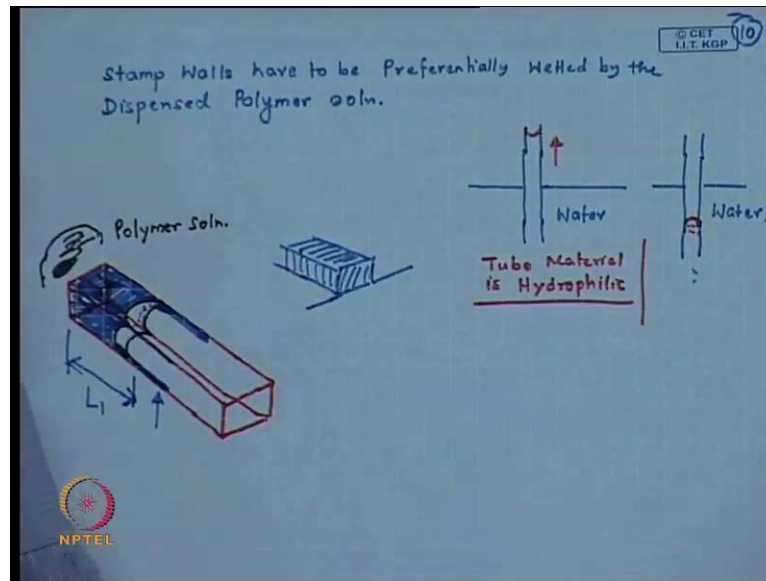 © CET
I.I.T. KGP
10
Stamp Walls have to be Preferentially Wetted by the
Dispensed Polymer soln.
Polymer soln.
Water
Water
Tube Material
is Hydrophilic
L1
NPTEL